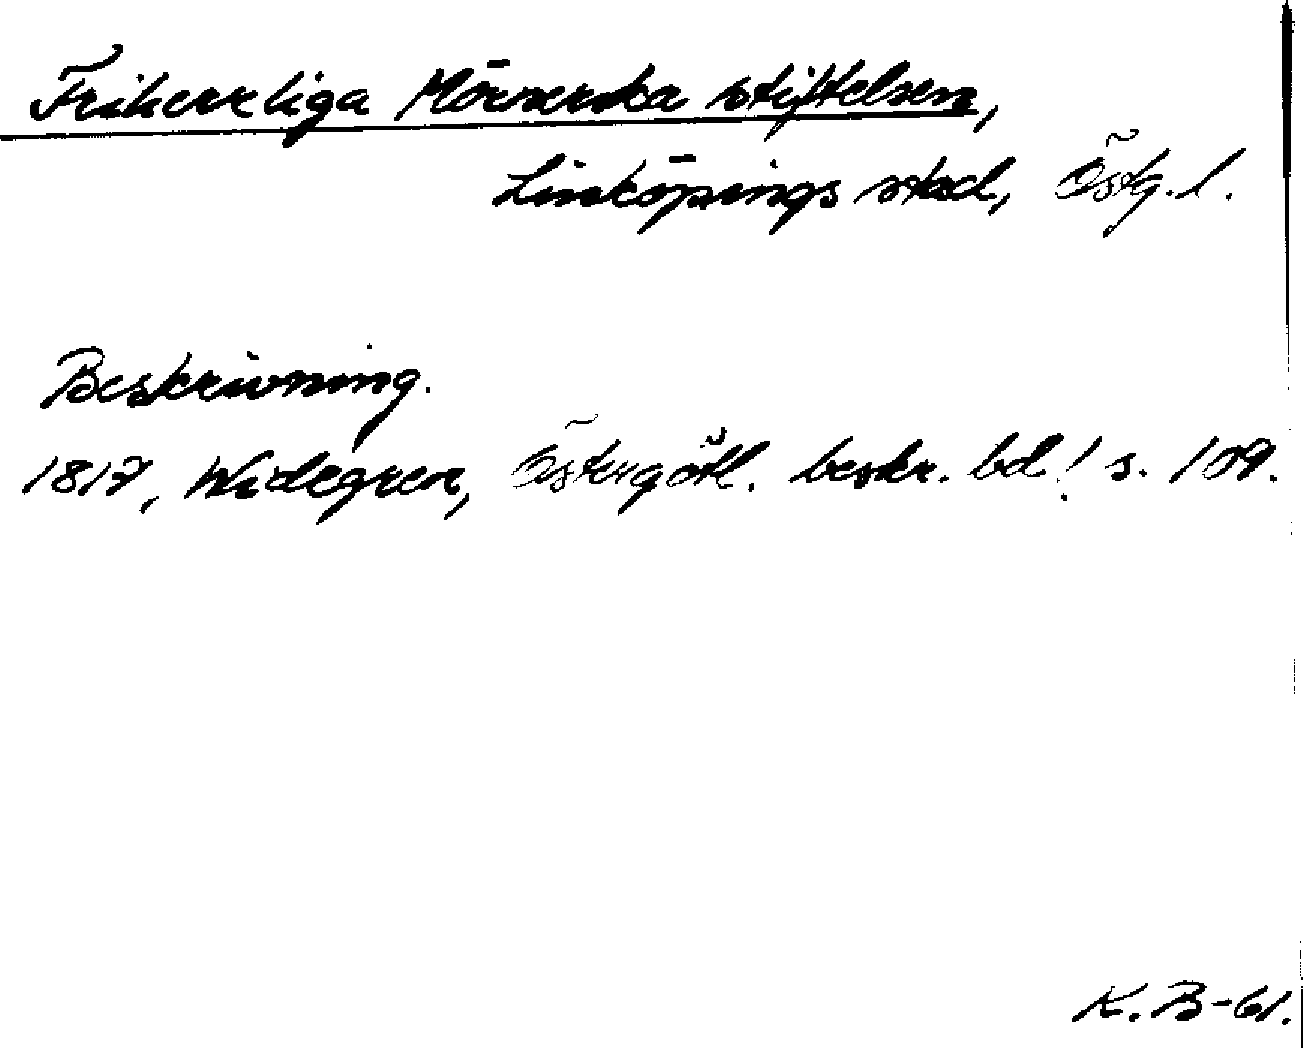 Friherrliga Mörnerska stiftelsen,
Linköpings stad, Östg. l.
Beskrivning.
1817, Widegren, Östergötl. beskr. bd 1 s. 109.
K. B-61.